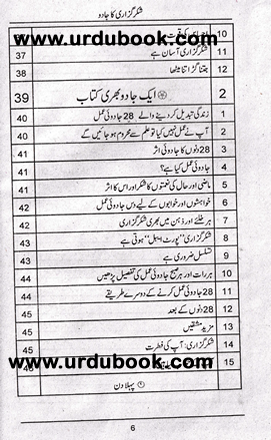 شکرگزاری کا جادو
10
www.urdubook.com
11 شکرگزاری آسان ہے 37
12 جتنا گڑ اتنا میٹھا 38
2 ایک جادو بھری کتاب 39
1 زندگی تبدیل کر دینے والے 28 جادوئی عمل 40
2 آپ نے عمل نہیں کیا تو علم سے محروم ہو جائیں گے 40
3 28 دنوں کا جادوئی اثر 41
4 جادوئی عمل کیا ہے؟ 41
5 ماضی اور حال کی نعمتوں کا شکر اور اس کا اثر 41
6 خواہشوں اور خوابوں کے لیے دس جادوئی عمل 42
7 ہر خلئے اور ذہن میں بھری شکرگزاری 42
8 شکرگزاری "پورٹ ایبل" ہوتی ہے 43
9 تسلسل ضروری ہے 43
10 ہر رات اور ہر صبح جادوئی عمل کی تفصیل پڑھیں 44
11 28 جادوئی عمل کرنے کے دوسرے طریقے 44
12 28 دنوں کے بعد 45
13 مزید مشقیں 45
14 شکرگزاری: آپ کی فطرت 45
15
www.urdubook.com
پہلا دن
6